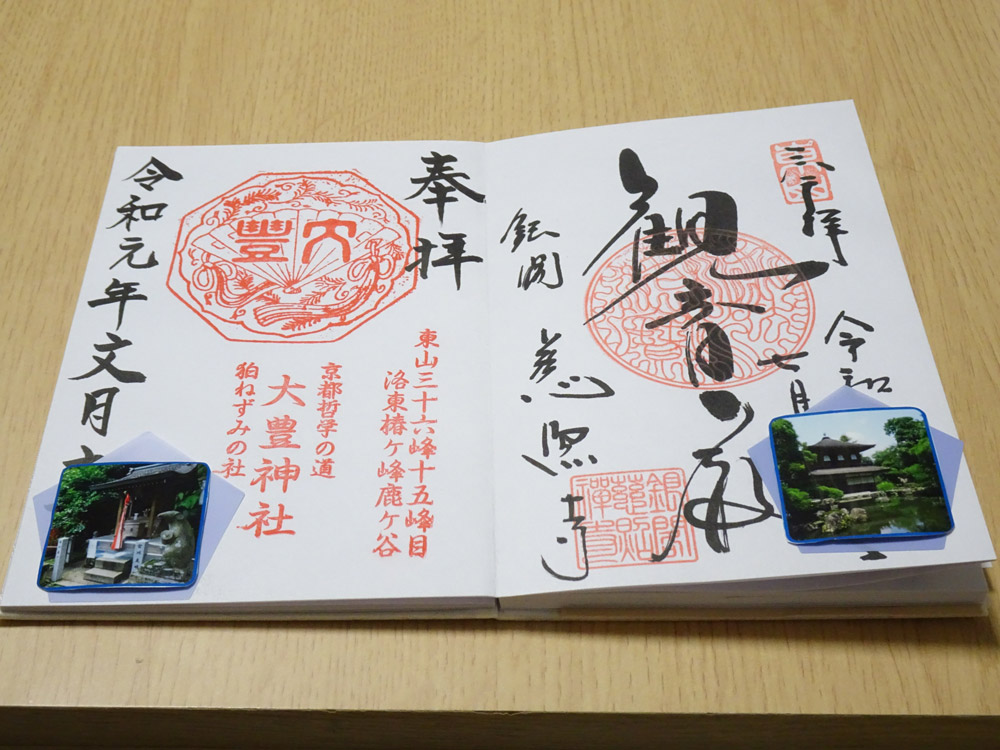 奉拝
令和
七月
観音殿
銀閣
慈照寺
奉拝
大豊
東山三十六峰十五峰目
洛東椿ケ峰鹿ケ谷
京都哲学の道
大豊神社
狛ねずみの社
令和元年文月